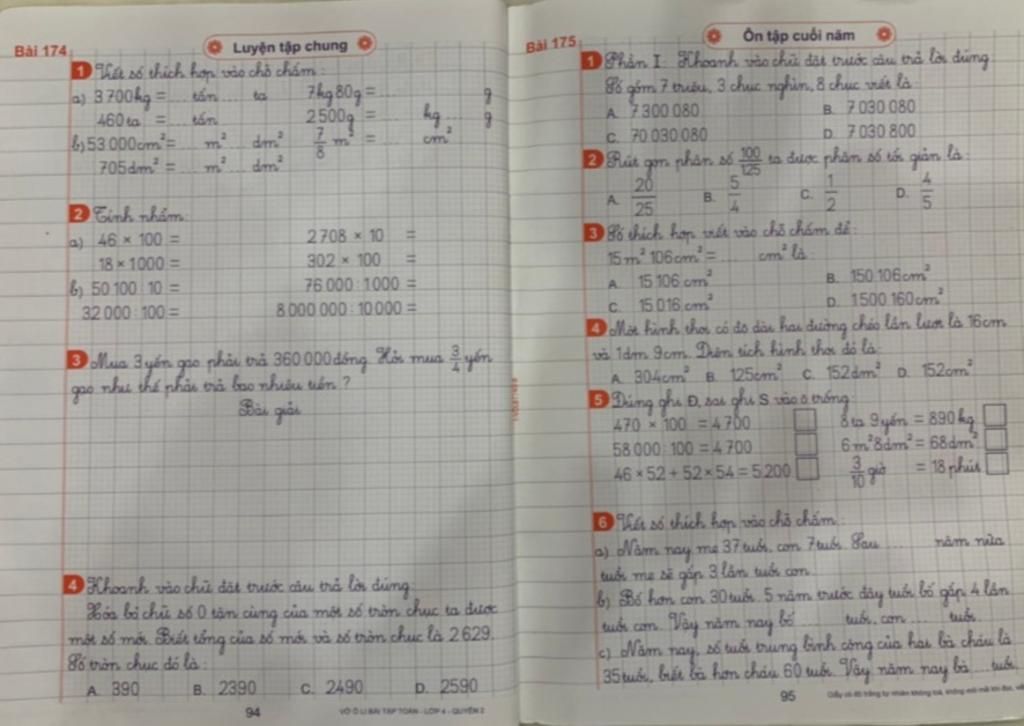 Bài 174
Luyện tập chung
1 Viết số thích hợp vào chỗ chấm:
a) 3 700kg = ... tấn ... tạ 7kg 80g = ... g
460 tạ = ... tấn 2 500g = ... kg ... g
b) 53 000cm² = ... m² ... dm² 7/8 m² = ... cm²
705dm² = ... m² ... dm²
2 Tính nhẩm:
a) 46 × 100 = 2 708 × 10 =
18 × 1000 = 302 × 100 =
b) 50 100 : 10 = 76 000 : 1 000 =
32 000 : 100 = 8 000 000 : 10 000 =
3 Mua 3 yến gạo phải trả 360 000 đồng. Hỏi mua 3/4 yến
gạo như thế phải trả bao nhiêu tiền ?
Bài giải
4 Khoanh vào chữ đặt trước câu trả lời đúng:
Xóa bỏ chữ số 0 tận cùng của một số tròn chục ta được
một số mới. Biết tổng của số mới và số tròn chục là 2 629.
Số tròn chục đó là:
A. 390 B. 2390 C. 2490 D. 2590
94
VỞ Ô LI BÀI TẬP TOÁN - LỚP 4 - QUYỂN 2
Bài 175
Ôn tập cuối năm
1 Phần I: Khoanh vào chữ đặt trước câu trả lời đúng:
Số gồm 7 triệu, 3 chục nghìn, 8 chục viết là:
A. 7 300 080 B. 7 030 080
C. 70 030 080 D. 7 030 800
2 Rút gọn phân số 100/125 ta được phân số tối giản là:
A. 20/25 B. 5/4 C. 1/2 D. 4/5
3 Số thích hợp viết vào chỗ chấm để:
15m² 106cm² = ... cm² là:
A. 15 106cm² B. 150 106cm²
C. 15 016cm² D. 1 500 160cm²
4 Một hình thoi có độ dài hai đường chéo lần lượt là 16cm
và 1dm 9cm. Diện tích hình thoi đó là:
A. 304cm² B. 125cm² C. 152dm² D. 152cm²
5 Đúng ghi Đ, sai ghi S vào ô trống:
470 × 100 = 4 700 8 tạ 9 yến = 890kg
58 000 : 100 = 4 700 6m² 8dm² = 68dm²
46 × 52 + 52 × 54 = 5 200 3/10 giờ = 18 phút
6 Viết số thích hợp vào chỗ chấm:
a) Năm nay mẹ 37 tuổi, con 7 tuổi. Sau ... năm nữa
tuổi mẹ sẽ gấp 3 lần tuổi con.
b) Bố hơn con 30 tuổi. 5 năm trước đây tuổi bố gấp 4 lần
tuổi con. Vậy năm nay bố ... tuổi, con ... tuổi.
c) Năm nay, số tuổi trung bình cộng của hai bà cháu là
35 tuổi, biết bà hơn cháu 60 tuổi. Vậy năm nay bà ... tuổi.
95
Giấy có độ trắng tự nhiên không lóa, không mỏi mắt khi đọc, viết